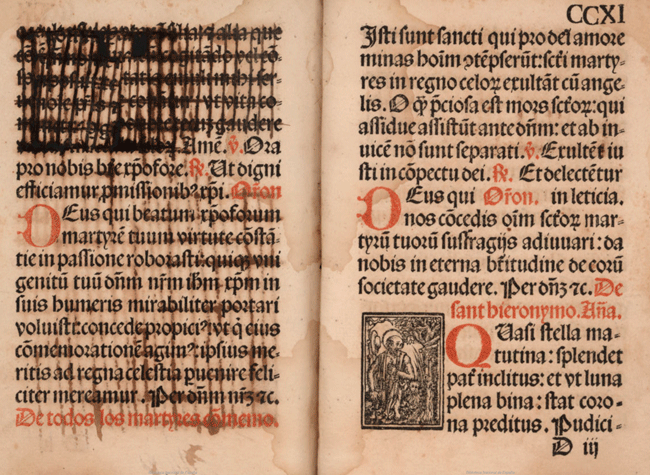 Amē. ℣. Ora
pro nobis btē xp̄ofore. ℟. Ut digni
efficiamur ꝓmissionibꝰ xp̄i. Orōn
DEus qui beatum xp̄oforum
martyrē tuum virtute cōstā-
tie in passione roborasti: quiqꝫ vni
genitū tuū dn̄m nr̄m ihm̄ xp̄m in
suis humeris mirabiliter portari
voluisti: concede propiciꝰ: vt q̄ eius
cōmemorationē agimꝰ: ipsius me-
ritis ad regna celestia ꝑuenire feli-
citer mereamur. Per dn̄m nr̄ꝫ ⁊c.
De todos los martyres cōmemo.
CCXI
Isti sunt sancti qui pro dei amore
minas hoīm ↄ̄tēpserūt: scti marty-
res in regno celoꝝ exultāt cū ange-
lis. O q̄ p̄ciosa est mors sctoꝝ: qui
assidue assistūt ante dn̄m: et ab in-
uicē nō sunt separati. ℣. Exultēt iu
sti in cōpectu dei. ℟. Et delectētur
DEus qui Orōn. in leticia.
nos cōcedis oīm sctoꝝ mar-
tyrū tuorū suffragijs adiuuari: da
nobis in eterna btītudine de eorū
societate gaudere. Per dn̄ꝫ ⁊c. De
sant hieronymo. Aña.
QUasi stella ma-
tutina: splendet
pat̄ inclitus: et vt luna
plena bina: stat coro-
na preditus. Pudici-
D iij